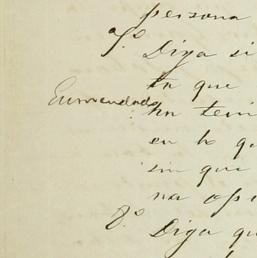 persona
7.º Diga si
ta que
Enmendado ha teni
en lo q
sin que
na opi
8.º Diga qu